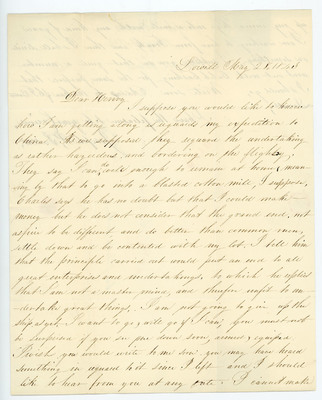 Lowell May 21, 184
Dear Henry
I suppose you would like to know
how I am getting along as regards my expedition to
China. As we supposed they regard the undertaking
as rather hazardous, and bordering on the flighty,
They say I am able enough to remain at home, mean-
ing by that to go into a blasted cotton mill, I suppose,
Charles says he has no doubt but that I could make
money but he does not consider that the grand end, not
aspire to be different, and do better than common men,
settle down and be contented with my lot. I tell him
that the principle carried out would put an end to all
great enterprises and undertakings, to which he replies
that I am not a master mind, and therefore unfit to un-
dertake great things. I am not going to give up the
ship as yet, I want to go, will go if I can, you must not
be surprised if you see me down soon, armed & equiped.
I wish you would write to me soon you may have heard
something in regard to it since I left and I should
like to hear from you at any rate. I cannot make